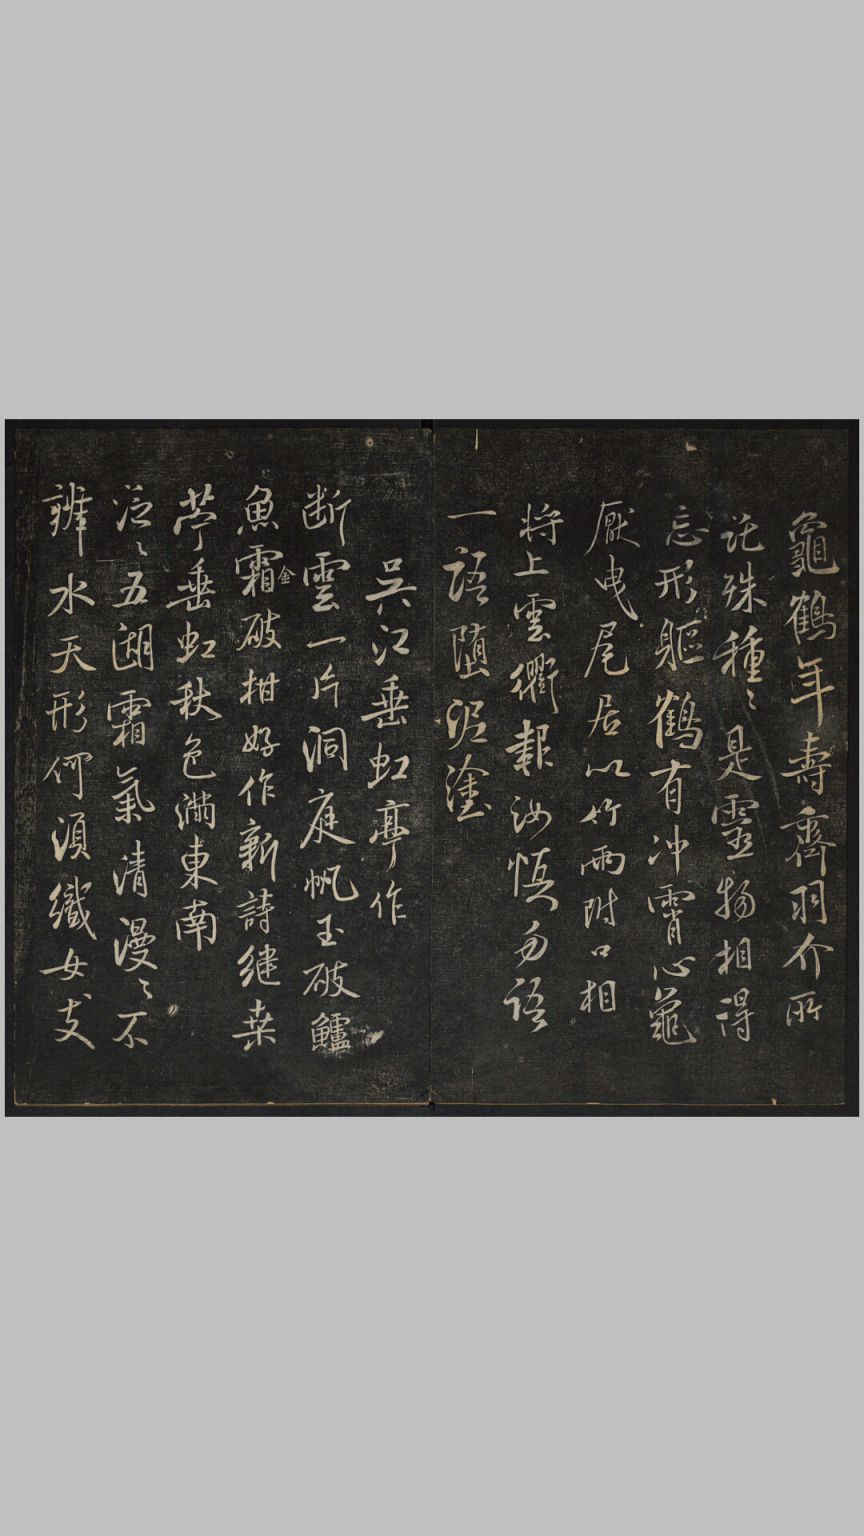 龜鶴年壽齊羽介所
託殊種種是靈物相得
忘形軀鶴有冲霄心龜
厭曳尾居以竹兩附口相
將上雲衢報汝慎勿語
一語墮泥塗
吳江垂虹亭作
断雲一片洞庭帆玉破鱸
魚霜金破柑好作新詩繼桒
苧垂虹秋色滿東南
泛泛五湖霜氣清漫漫不
辨水天形何須織女支